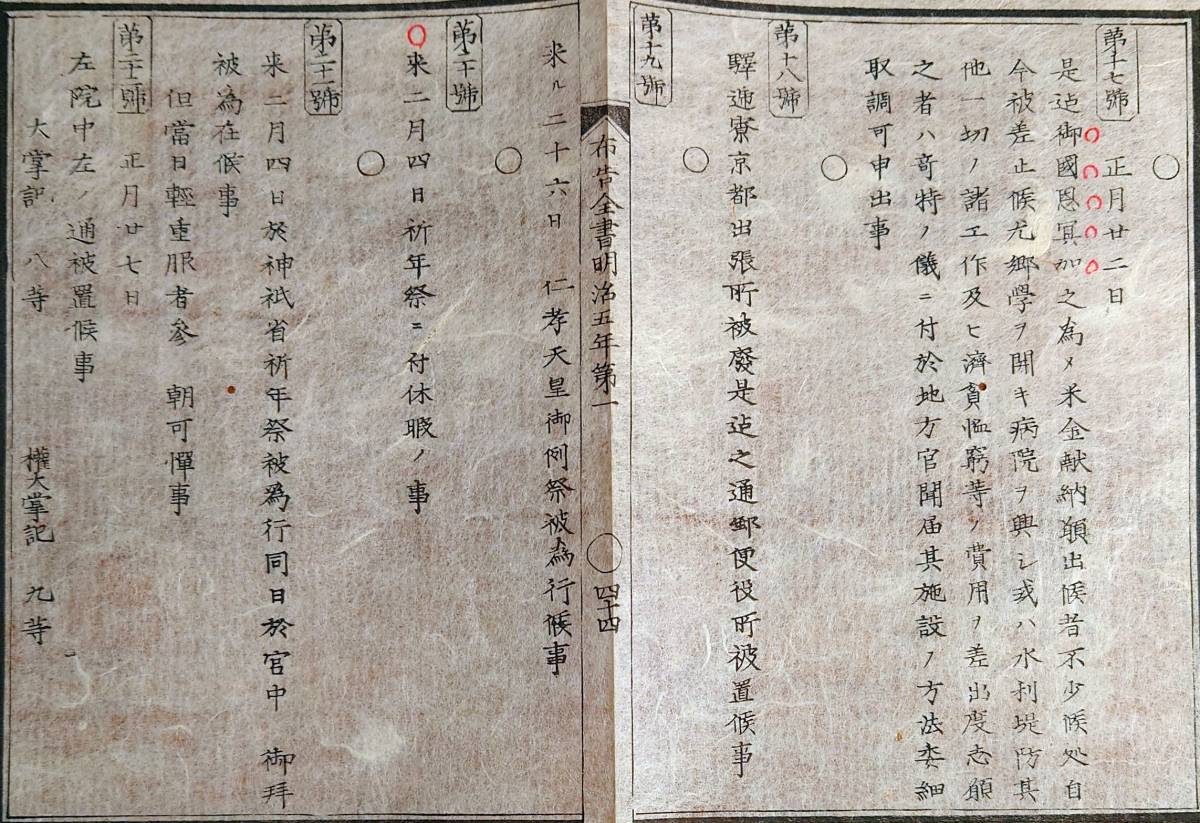 第十七號
正月廿二日
是迠御國恩冥加之為メ米金献納願出候者不少候処自
今被差止候尤郷學ヲ開キ病院ヲ興シ或ハ水利堤防其
他一切ノ諸工作及ヒ濟貧恤窮等ノ費用ヲ差出度志願
之者ハ奇特ノ儀ニ付於地方官聞届其施設ノ方法委細
取調可申出事
第十八號
驛逓寮京都出張所被廢是迠之通郵便役所被置候事
第十九號
布告全書明治五年第一
四十四
来ル二十六日 仁孝天皇御例祭被為行候事
第二十號
来二月四日祈年祭ニ付休暇ノ事
第二十一號
来二月四日於神祇省祈年祭被為行同日於宮中 御拜
被為在候事
但當日輕重服者參 朝可憚事
第二十二號
正月廿七日
左院中左ノ通被置候事
大掌記 八等 權大掌記 九等